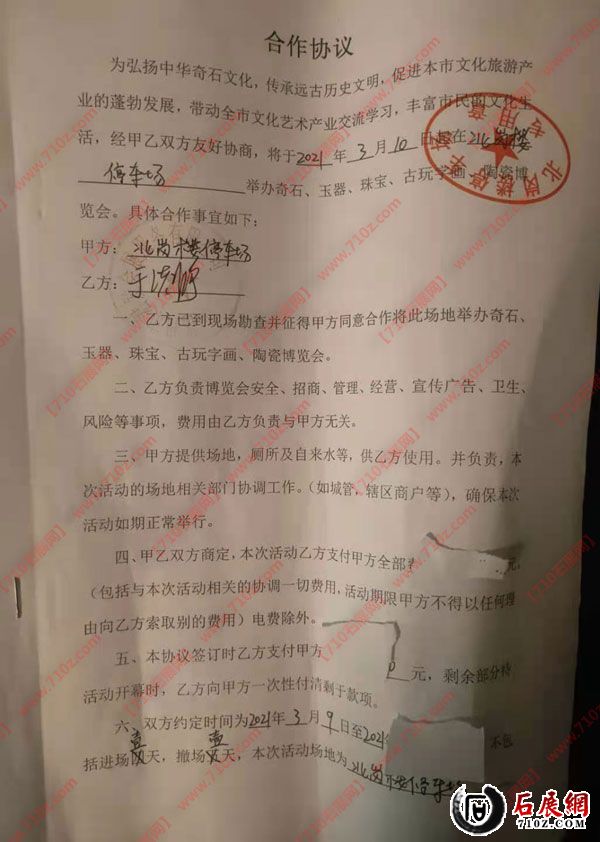 合作协议
为弘扬中华奇石文化，传承远古历史文明，促进本市文化旅游产
业的蓬勃发展，带动全市文化艺术产业交流学习，丰富市民的文化生
活，经甲乙双方友好协商，将于2021年3月10日起在北岗楼
停车场举办奇石、玉器、珠宝、古玩字画、陶瓷博
览会。具体合作事宜如下：
甲方：北岗楼停车场
乙方：
一、乙方已到现场勘查并征得甲方同意合作将此场地举办奇石、
玉器、珠宝、古玩字画、陶瓷博览会。
二、乙方负责博览会安全、招商、管理、经营、宣传广告、卫生、
风险等事项，费用由乙方负责与甲方无关。
三、甲方提供场地，厕所及自来水等，供乙方使用。并负责，本
次活动的场地相关部门协调工作。（如城管，辖区商户等），确保本次
活动如期正常举行。
四、甲乙双方商定，本次活动乙方支付甲方全部 元，
（包括与本次活动相关的协调一切费用，活动期限甲方不得以任何理
由向乙方索取别的费用）电费除外。
五、本协议签订时乙方支付甲方 元，剩余部分待
活动开幕时，乙方向甲方一次性付清剩于款项。
六、双方约定时间为2021年3月9日至2021 不包
括进场壹天，撤场壹天，本次活动场地为北岗楼停车场
北岗楼停车场
专用章
【710石展网】www.710z.com
石展網
710Z.COM